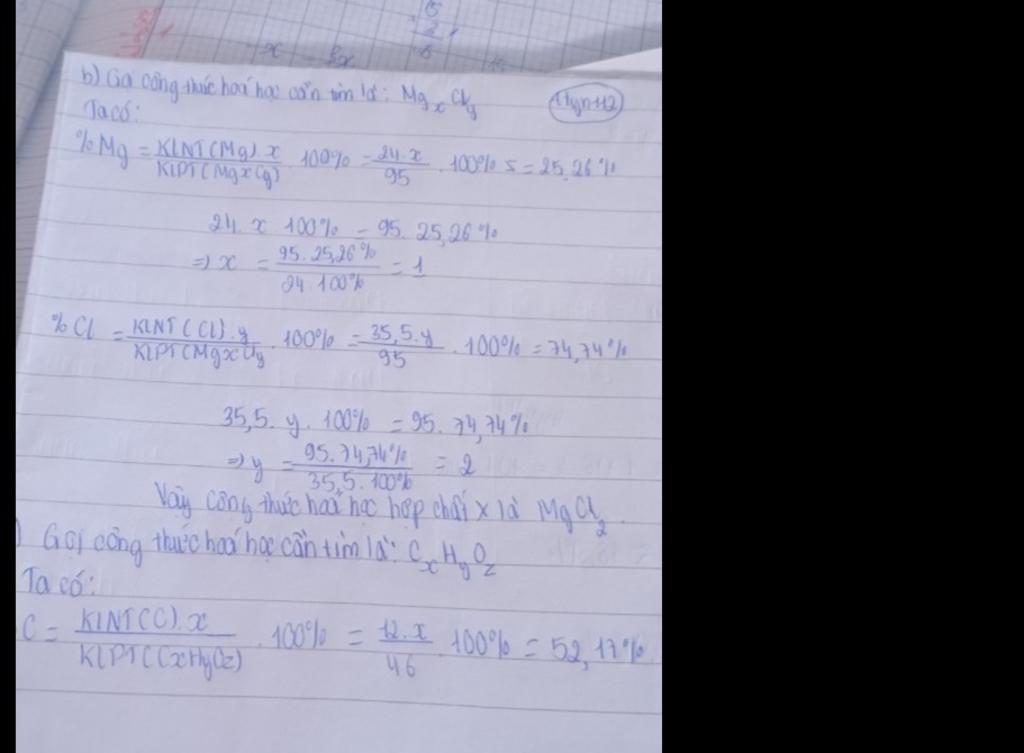 b) Gọi công thức hoá học cần tìm là: MgxCly
Ta có:
%Mg = KLNT(Mg).x / KLPT(MgxCly) . 100% = 24.x / 95 . 100% = 25,26%
24. x 100% = 95. 25,26%
=> x = 95. 25,26% / 24 100% = 1
%Cl = KLNT(Cl).y / KLPT(MgxCly . 100% = 35,5.y / 95 . 100% = 74,74%
35,5. y. 100% = 95. 74,74%
=> y = 95. 74,74% / 35,5. 100% = 2
Vậy công thức hoá học hợp chất X là MgCl2.
) Gọi công thức hoá học cần tìm là: CxHyOz
Ta có:
C = KLNT(C).x / KLPT(CxHyOz) . 100% = 12.x / 46 . 100% = 52,17%